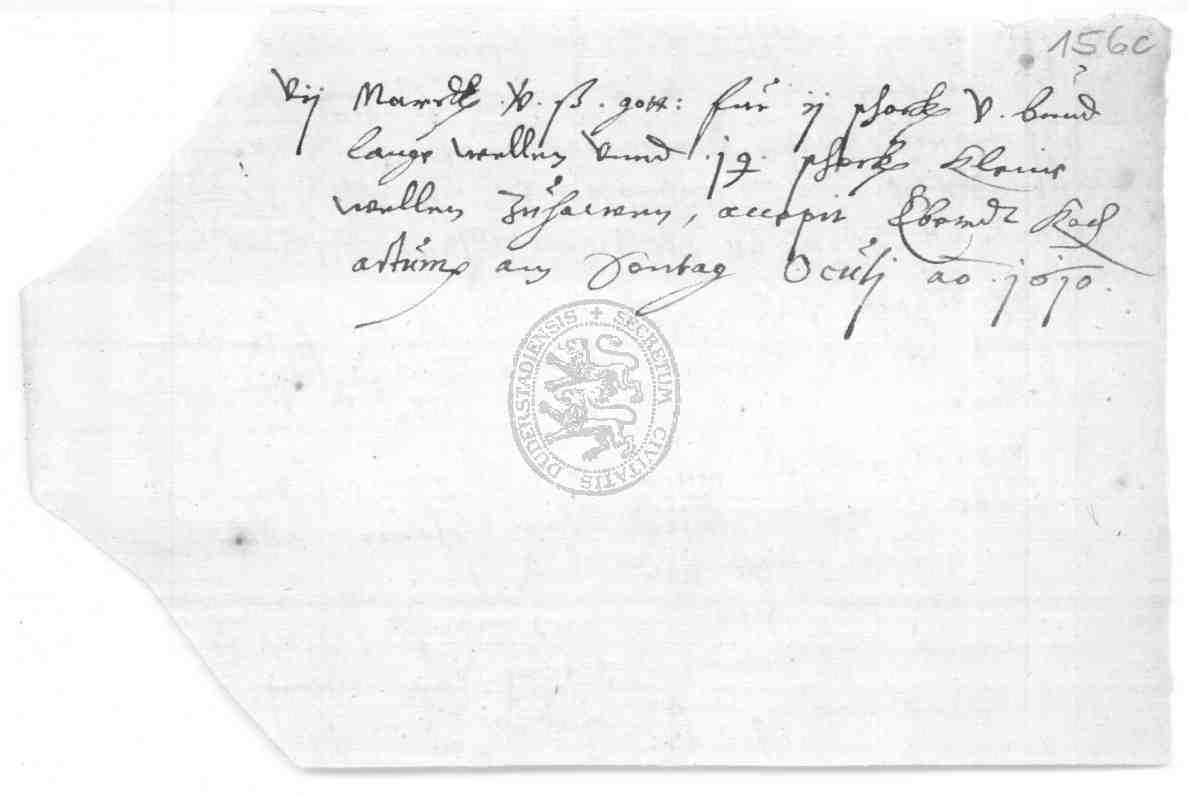 156c
vij Marck v. ß. gott: für ij schock v. bund
lange wellen vnnd .j schock kleine
wellen Zuhawen, accepit Eberndt Koch
actum am Sontag Oculj ao. 1610.
SECRETUM CIVITATIS DUDERSTADIENSIS